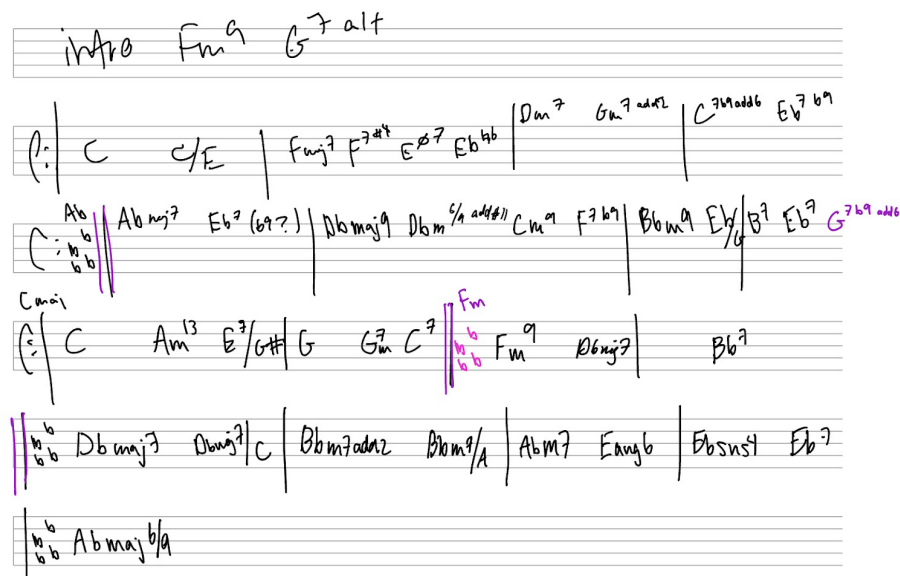 intro Fm9 G7 alt
C C/E | Fmaj7 F7#4 Eø7 Eb7b6 | Dm7 Gm7 add2 | C7b9 add6 Eb7 b9
Ab || Abmaj7 Eb7 (b9?) | Dbmaj9 Dbm6/9 add#11 Cm9 F7b9 | Bbm9 Eb/G | B7 Eb7 G7b9 add6
Cmaj
C Am13 E7/G# | G Gm7 C7 || Fm Fm9 Dbmaj7 | Bb7
Dbmaj7 Dbmaj7/C | Bbm7add2 Bbm7/A | Abm7 Eaug6 | Ebsus4 Eb7
Abmaj6/9